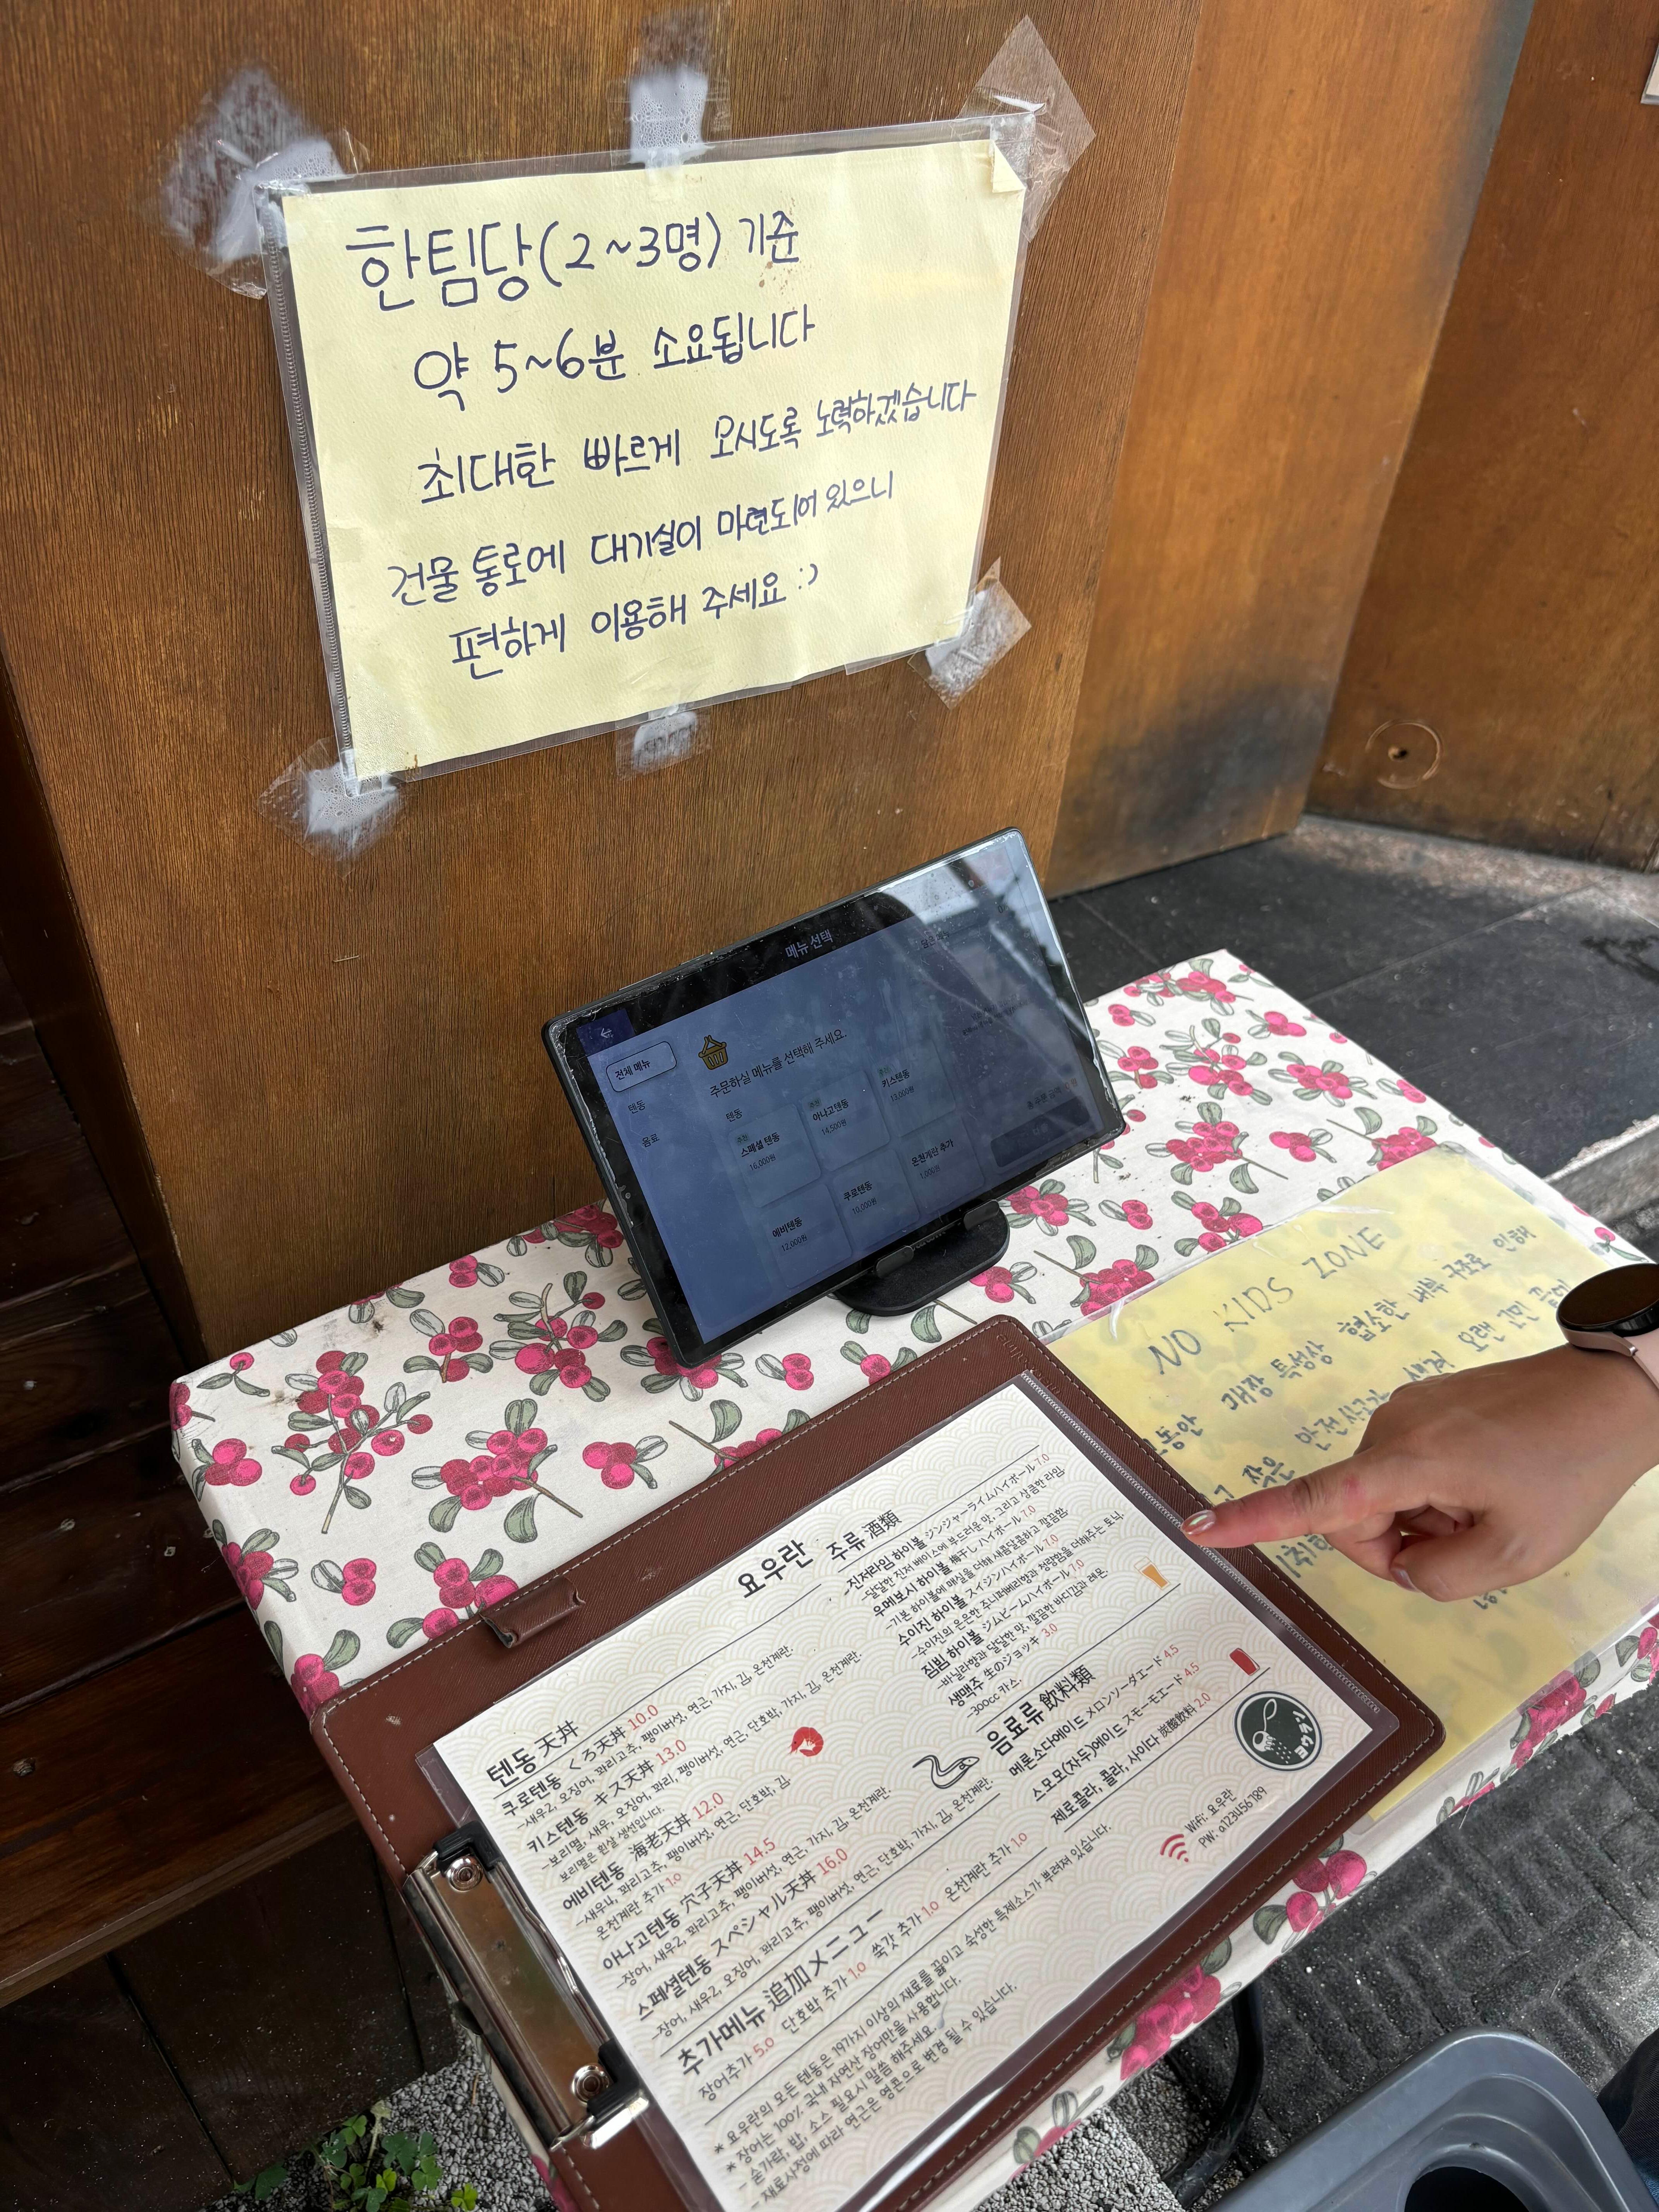 한팀당(2~3명) 기준
약 5~6분 소요됩니다
최대한 빠르게 모시도록 노력하겠습니다
건물 통로에 대기실이 마련되어 있으니
편하게 이용해 주세요 :)
메뉴 선택
전체 메뉴
텐동
음료
주문하실 메뉴를 선택해 주세요.
텐동
추천
스페셜 텐동
16,000원
추천
아나고텐동
14,500원
추천
키스텐동
13,000원
에비텐동
12,000원
쿠로텐동
10,000원
온천계란 추가
1,000원
NO KIDS ZONE
매장 특성상 협소한 내부 구조로 인해
안전사고가 오랜
작은
요우란
텐동 天丼
쿠로텐동 くろ天丼 10.0
-새우2, 오징어, 꽈리고추, 팽이버섯, 연근, 가지, 김, 온천계란.
키스텐동 キス天丼 13.0
-보리멸, 새우, 오징어, 꽈리, 팽이버섯, 연근, 단호박, 가지, 김, 온천계란.
보리멸은 흰살 생선입니다.
에비텐동 海老天丼 12.0
-새우4, 꽈리고추, 팽이버섯, 연근, 단호박, 김
온천계란 추가 1.0
아나고텐동 穴子天丼 14.5
-장어, 새우2, 꽈리고추, 팽이버섯, 연근, 가지, 김, 온천계란.
스페셜텐동 スペシャル天丼 16.0
-장어, 새우2, 오징어, 꽈리고추, 팽이버섯, 연근, 단호박, 가지, 김, 온천계란.
추가메뉴 追加メニュー
장어추가 5.0 단호박 추가 1.0 쑥갓 추가 1.0 온천계란 추가 1.0
* 요우란의 모든 텐동은 19가지 이상의 재료를 끓이고 숙성한 특제소스가 뿌려져 있습니다.
* 장어는 100% 국내 자연산 장어만을 사용합니다.
- 숟가락, 밥, 소스 필요시 말씀 해주세요.
- 재료사정에 따라 연근은 영콘으로 변경 될 수 있습니다.
주류 酒類
진저라임 하이볼 ジンジャーライムハイボール 7.0
-달달한 진저 베이스에 부드러운 맛, 그리고 상큼한 라임
우메보시 하이볼 梅干し ハイボール 7.0
-기본 하이볼에 매실을 더해 새콤달콤하고 깔끔함.
수이진 하이볼 スイジンハイボール 7.0
-수이진의 은은한 주니퍼베리향과 청량함을 더해주는 토닉.
짐빔 하이볼 ジムビームハイボール 7.0
-바닐라향과 달달한 맛, 깔끔한 바디감과 레몬.
생맥주 生のジョッキ 3.0
-300cc 카스.
음료류 飲料類
메론소다에이드 メロンソーダエード 4.5
스모모(자두)에이드 スモーモエード 4.5
제로콜라, 콜라, 사이다 炭酸飲料 2.0
WiFi: 요우란
PW: a123456789